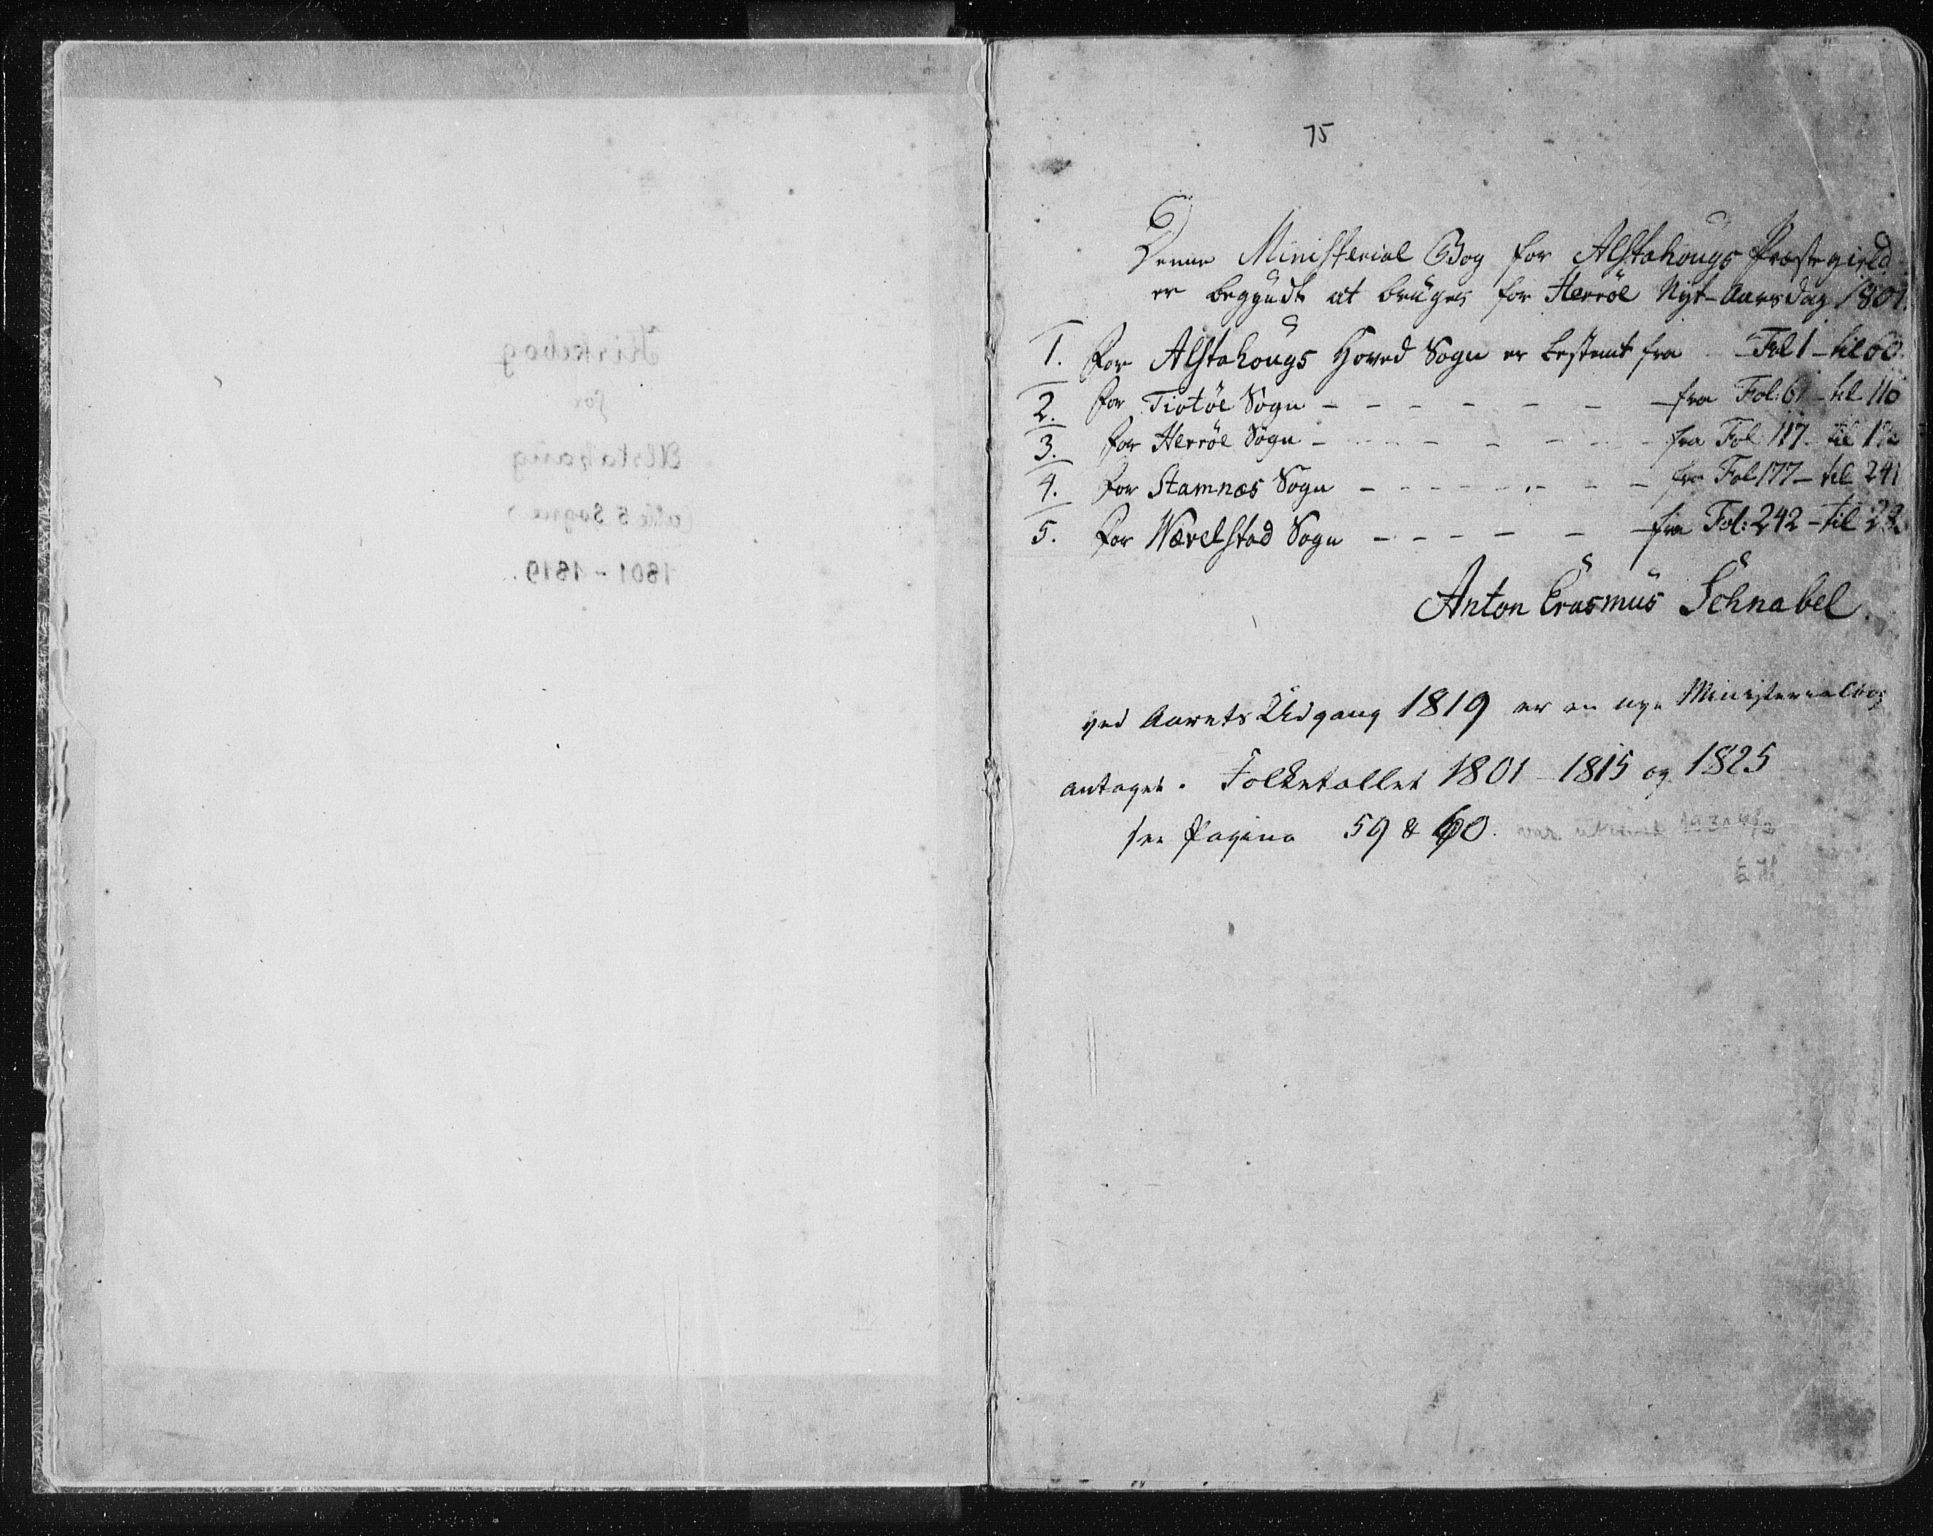 Kirkebog
for
Alstahaug
(alle 5 Sogne)
1801 - 1819.
75
Denne Ministerial Bog for Alstahougs Præstegield
er begyndt at bruges for Herrøe Nyt-Aarsdag 1801.
1. for Alstahougs Hoved Sogn er bestemt fra - Fol 1 - til 60.
2. for Tiotøe Sogn - - - - - - fra Fol: 61 - til 116
3. for Herrøe Sogn - - - - - - fra Fol 117 - til
4. for Stamnæs Sogn - - - - - - fra Fol 177 - til 241
5. for Nævelstad Sogn - - - - - fra Fol: 242 - til
Anton Erasmus Schnabel.
ved Aarets Udgang 1819 er en nye Ministerialbog
antaget. Folketallet 1801 - 1815 og 1825
see Pagina 59 & 60.